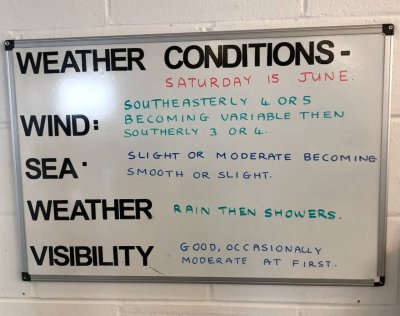 WEATHER CONDITIONS-
SATURDAY 15 JUNE.
WIND: SOUTHEASTERLY 4 OR 5
BECOMING VARIABLE THEN
SOUTHERLY 3 OR 4.
SEA· SLIGHT OR MODERATE BECOMING
SMOOTH OR SLIGHT.
WEATHER RAIN THEN SHOWERS.
VISIBILITY GOOD, OCCASIONALLY
MODERATE AT FIRST.